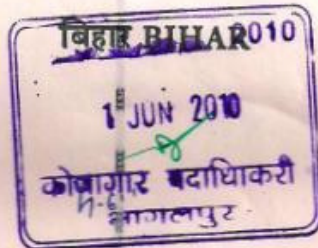 बिहार BIHAR 2010
1 JUN 2010
कोषागार पदाधिकारी
भागलपुर